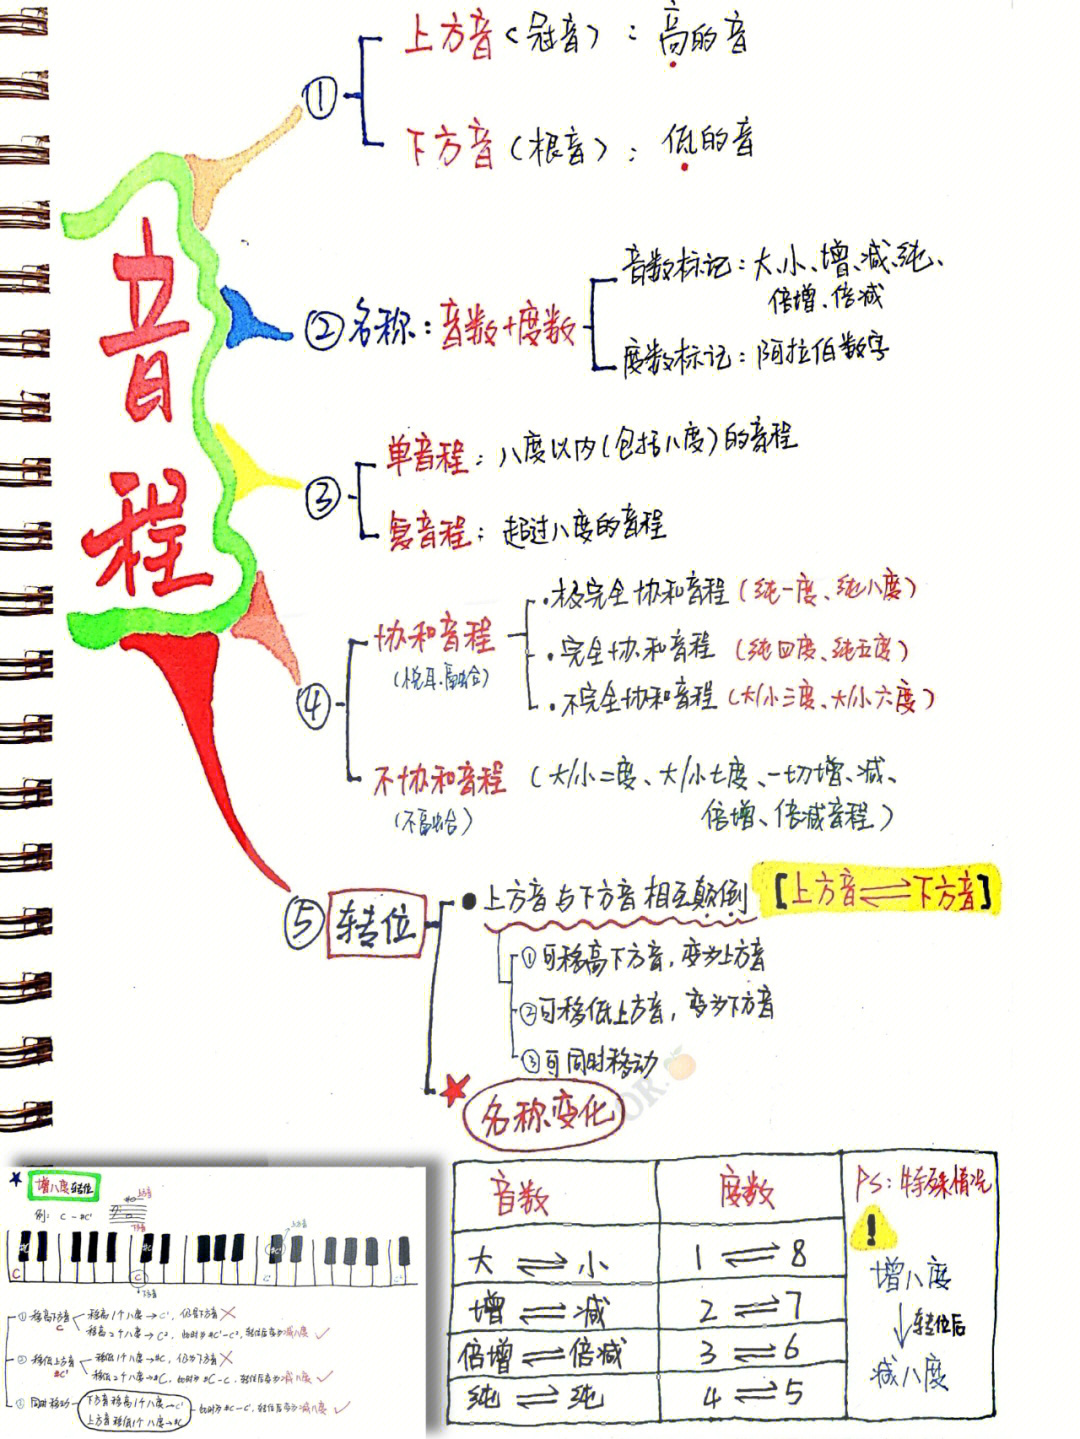 音程
①
上方音（冠音）：高的音
下方音（根音）：低的音
②名称：音数+度数
音数标记：大、小、增、减、纯、
倍增、倍减
度数标记：阿拉伯数字
③
单音程：八度以内（包括八度）的音程
复音程：超过八度的音程
④
协和音程
（悦耳、融合）
·极完全协和音程（纯一度、纯八度）
·完全协和音程（纯四度、纯五度）
·不完全协和音程（大/小三度、大/小六度）
不协和音程（大/小二度、大/小七度、一切增、减、
倍增、倍减音程）
（不融合）
⑤转位
●上方音与下方音相互颠倒【上方音⇌下方音】
①可移高下方音，变为上方音
②可移低上方音，变为下方音
③可同时移动
★名称变化
音数 度数
大⇌小 1⇌8
增⇌减 2⇌7
倍增⇌倍减 3⇌6
纯⇌纯 4⇌5
PS：特殊情况
!
增八度
↓转位后
减八度
★增八度转位
例：C－#C¹
上方音
下方音
上方音
下方音
①移高下方音 C
移高1个八度→C¹，仍是下方音×
移高2个八度→C²，此时为#C¹－C²，转位后变为减八度✓
②移低上方音 #C¹
移低1个八度→#C，仍为下方音×
移低2个八度→#C，此时为#C－C，转位后变为减八度✓
③同时移动
下方音移高1个八度→C¹
上方音移低1个八度→#C
此时为#C－C¹，转位后变为减八度✓